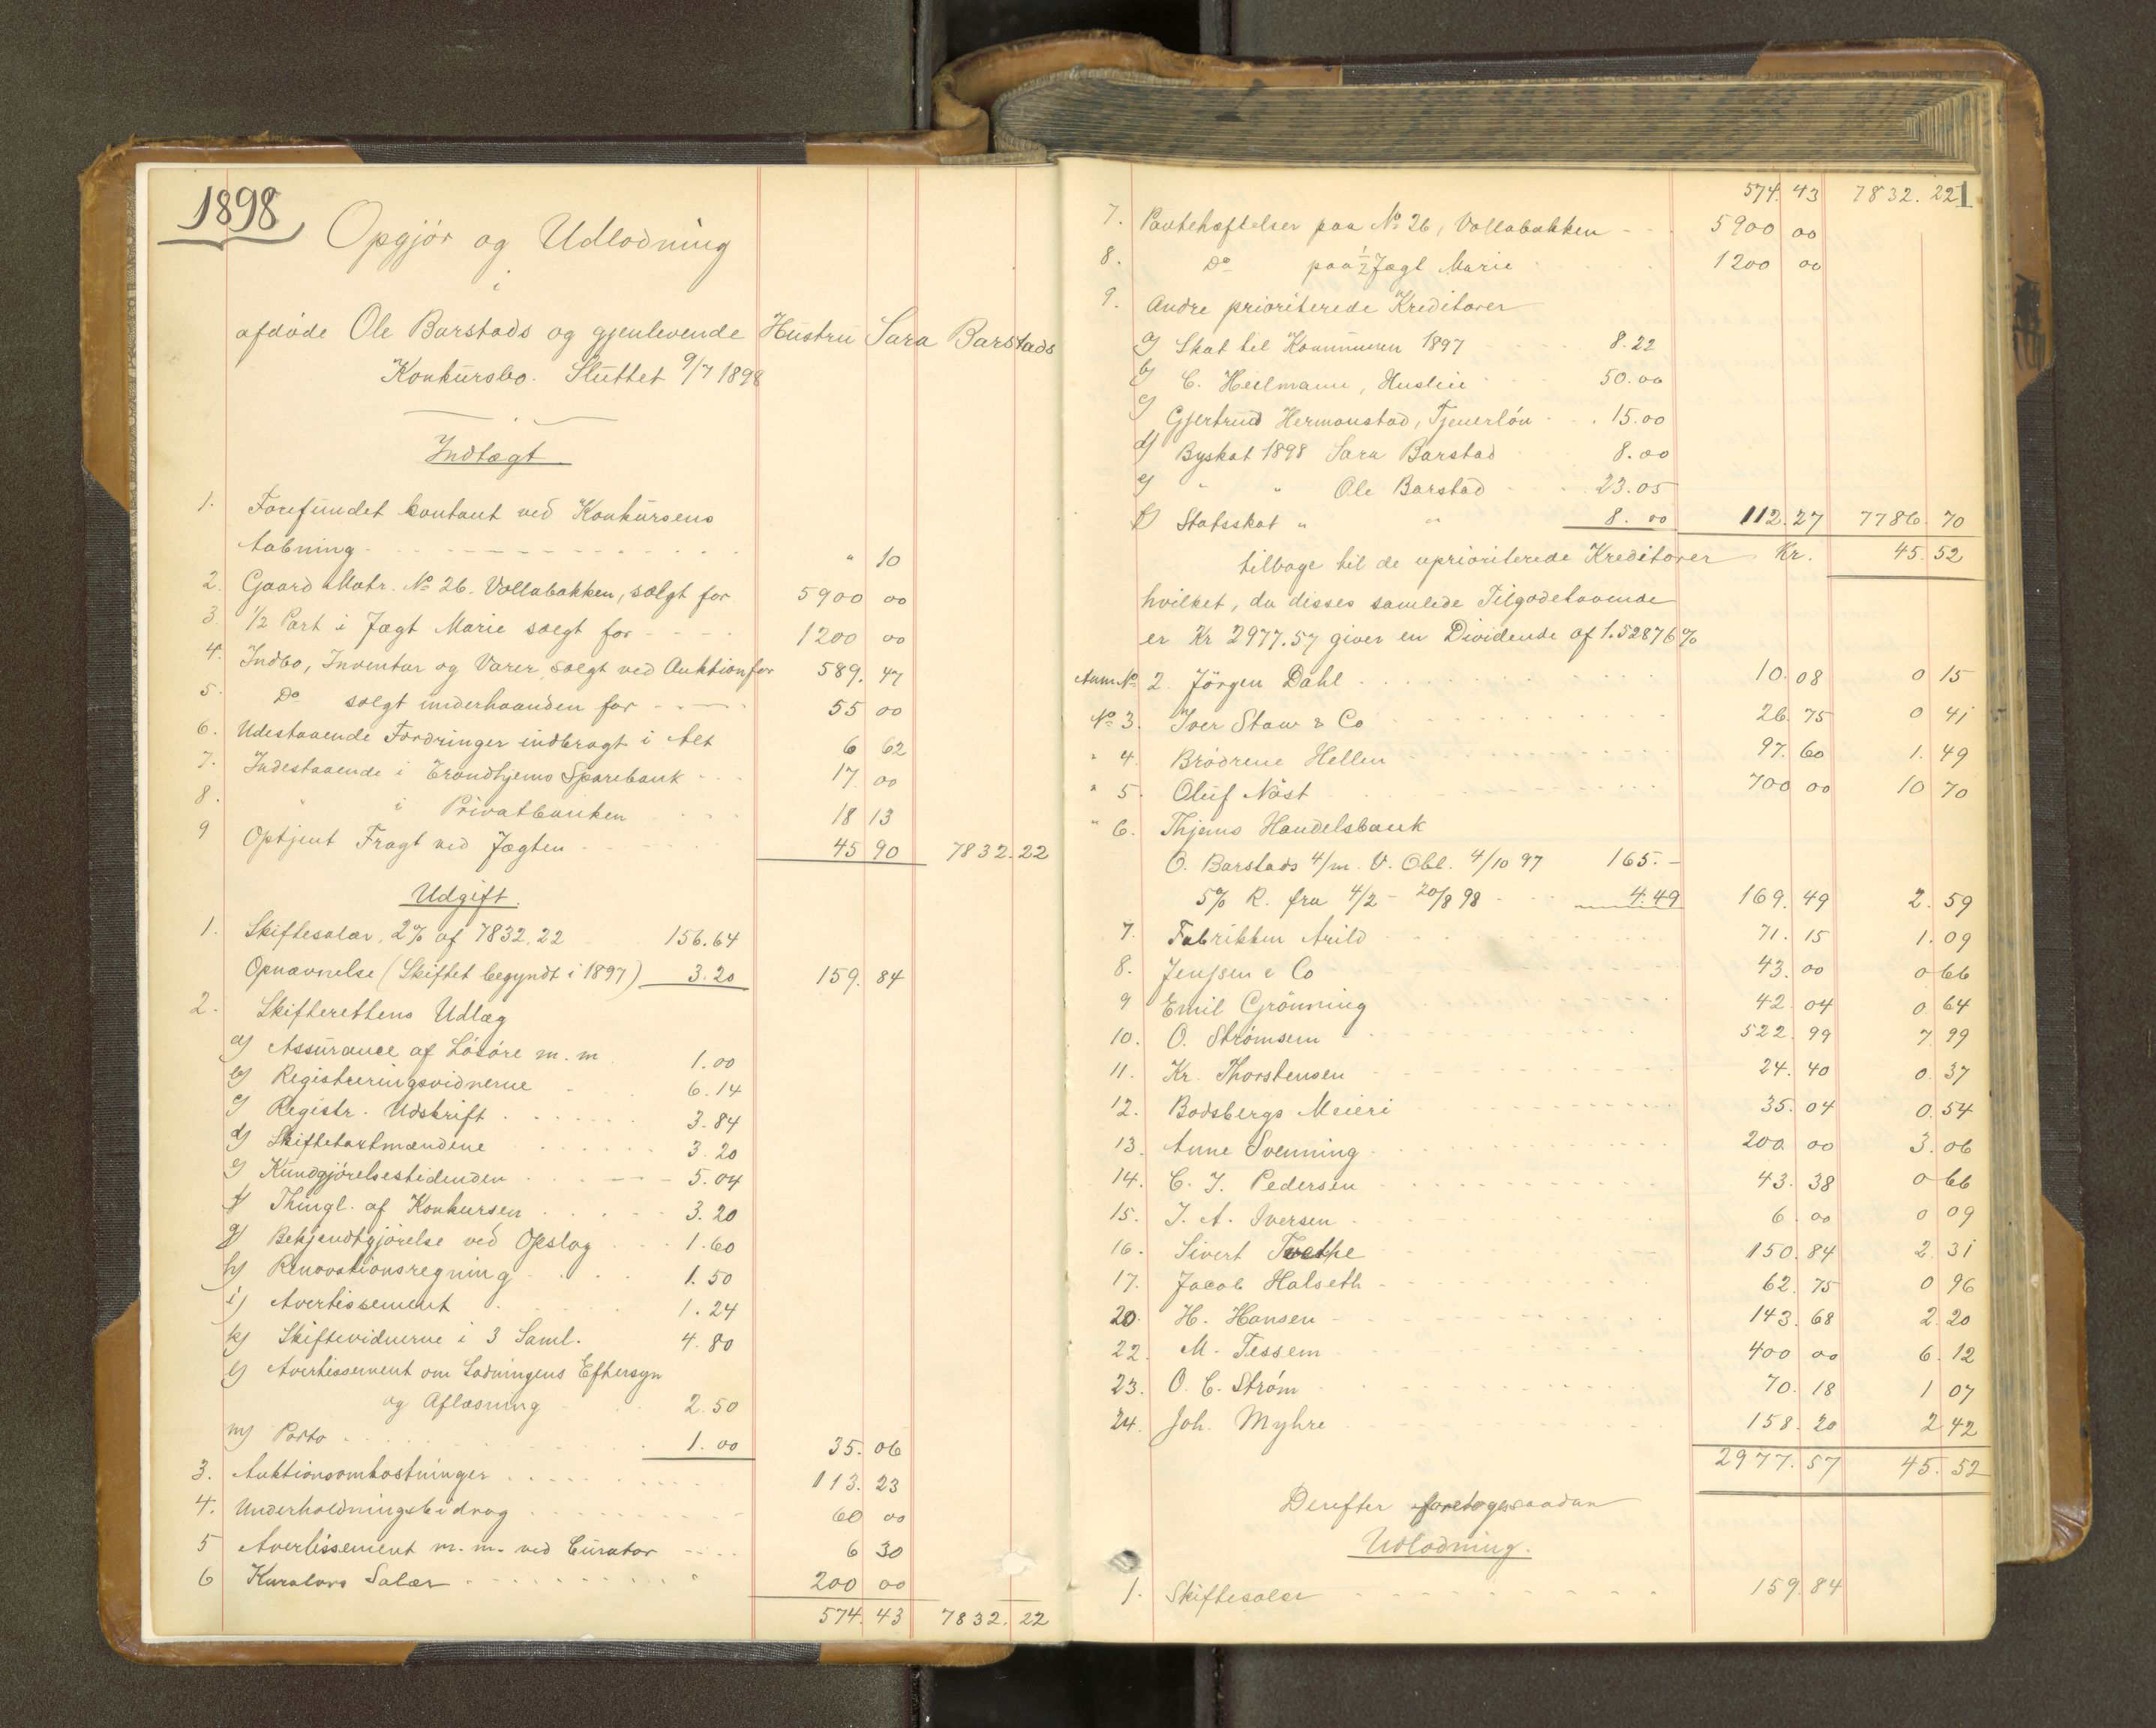 1898
Opgjør og Udlodning
i
afdøde Ole Barstads og gjenlevende Hustru Sara Barstads
Konkursbo. Sluttet 9/7 1898
Indtægt
1. Forefundet kontant ved Konkursens
Aabning " 10
2. Gaard Matr. No 26. Vollabakken, solgt for 5900 00
3. 1/2 Part i Jægt Marie solgt for 1200 00
4. Indbo, Inventar og Varer, solgt ved Auktion for 589. 47
5. Do solgt underhaanden for 55 00
6. Udestaaende Fordringer indbragt i Alt 6 62
7. Indestaaende i Trondhjems Sparebank 17 00
8. " i Privatbanken 18 13
9 Optjent Fragt ved Jægten 45 90 7832. 22
Udgift.
1. Skiftesalær, 2% af 7832.22 156.64
Opnævnelse (Skiftet begyndt i 1897) 3.20 159. 84
2. Skifterettens Udlæg
a) Assurance af Løsøre m. m 1.00
b) Registreringsvidnerne 6.14
c) Registr. Udskrift 3.84
d) Skiftetaxtmændene 3.20
e) Kundgjørelsestidenden 5.04
f) Thingl. af Konkursen 3.20
g) Bekjendtgjørelse ved Opslag 1.60
h) Renovationsregning 1.50
i) Avertissement 1.24
k) Skiftevidnerne i 3 Saml. 4.80
l) Avertissement om Lodningens Eftersyn
og Aflæsning 2.50
m) Porto 1.00 35. 06
3. Auktionsomkostninger 113. 23
4. Underholdningsbidrag 60 00
5 Avertissement m. m. ved Curator 6 30
6 Kurators Salær 200 00
574. 43 7832. 22
574. 43 7832. 22 1
7. Pantehæftelser paa No 26, Vollabakken 5900 00
8. Do paa 1/2 Jægt Marie 1200 00
9. Andre prioriterede Kreditorer
a) Skat til Kommunen 1897 8.22
b) C. Heilmann, Husleie 50.00
c) Gjertrud Hermanstad, Tjenerløn 15.00
d) Byskat 1898 Sara Barstad 8.00
e) " " Ole Barstad 23.05
f) Statsskat " " 8.00 112.27 7786. 70
tilbage til de uprioriterede Kreditorer Kr. 45. 52
hvilket, da disses samlede Tilgodehavende
er Kr 2977.57 giver en Dividende af 1.52876%
Anm. No 2. Jörgen Dahl 10.08 0 15
No 3. Iver Staw & Co 26. 75 0 41
" 4. Brødrene Hellen 97. 60 1. 49
" 5. Oluf Näst 700 00 10 70
" 6. Thjems Handelsbank
O. Barstads 4/m. V. Obl. 4/10 97 165.-
5% R. fra 4/2 - 20/8 98 4.49 169. 49 2. 59
7. Fabrikken Arild 71. 15 1. 09
8. Jenssen & Co 43. 00 0 66
9 Emil Grönning 42. 04 0. 64
10. O. Strømsem 522. 99 7. 99
11. Kr. Thorstensen 24. 40 0. 37
12. Bodsbergs Meieri 35. 04 0. 54
13. Anne Svenning 200. 00 3. 06
14. C. J. Pedersen 43. 38 0 66
15. J. A. Iversen 6. 00 0 09
16. Sivert Tvethe 150. 84 2. 31
17. Jacob Halseth 62. 75 0 96
20. H. Hansen 143. 68 2. 20
22. M. Tessem 400 00 6. 12
23. O. C. Strøm 70. 18 1 07
24. Joh. Myhre 158. 20 2 42
2977. 57 45. 52
Derefter foretoges saadan
Udlodning.
1. Skiftesalær 159.84